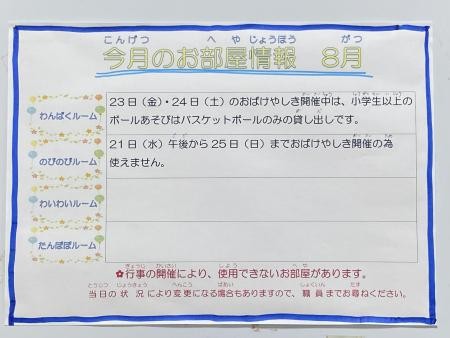 こんげつ へや じょうほう がつ
今月のお部屋情報 8月
わんぱくルーム
23日（金）・24日（土）のおばけやしき開催中は、小学生以上の
ボールあそびはバスケットボールのみの貸し出しです。
のびのびルーム
21日（水）午後から25日（日）までおばけやしき開催の為
使えません。
わいわいルーム
たんぽぽルーム
ぎょうじ かいさい しよう へや
✿行事の開催により、使用できないお部屋があります。
とうじつ じょうきょう へんこう ばあい しょくいん たず
当日の状況により変更になる場合もありますので、職員までお尋ねください。